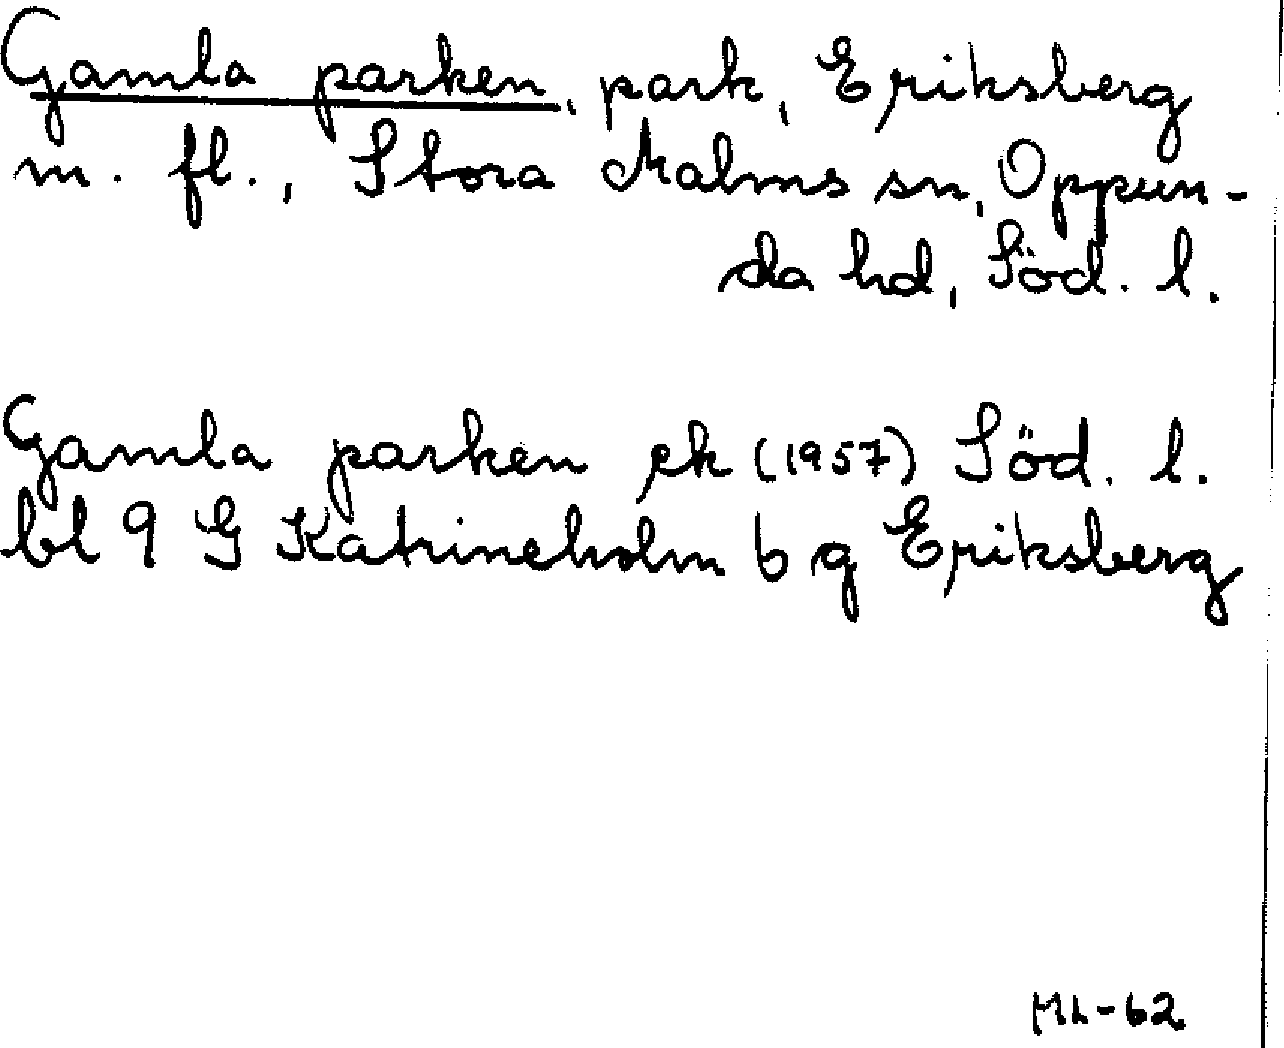 Gamla parken, park, Eriksberg
m. fl., Stora Malms sn, Oppun-
da hd, Söd. l.
Gamla parken ek (1957) Söd. l.
bl 9 G Katrineholm b g Eriksberg
ML-62